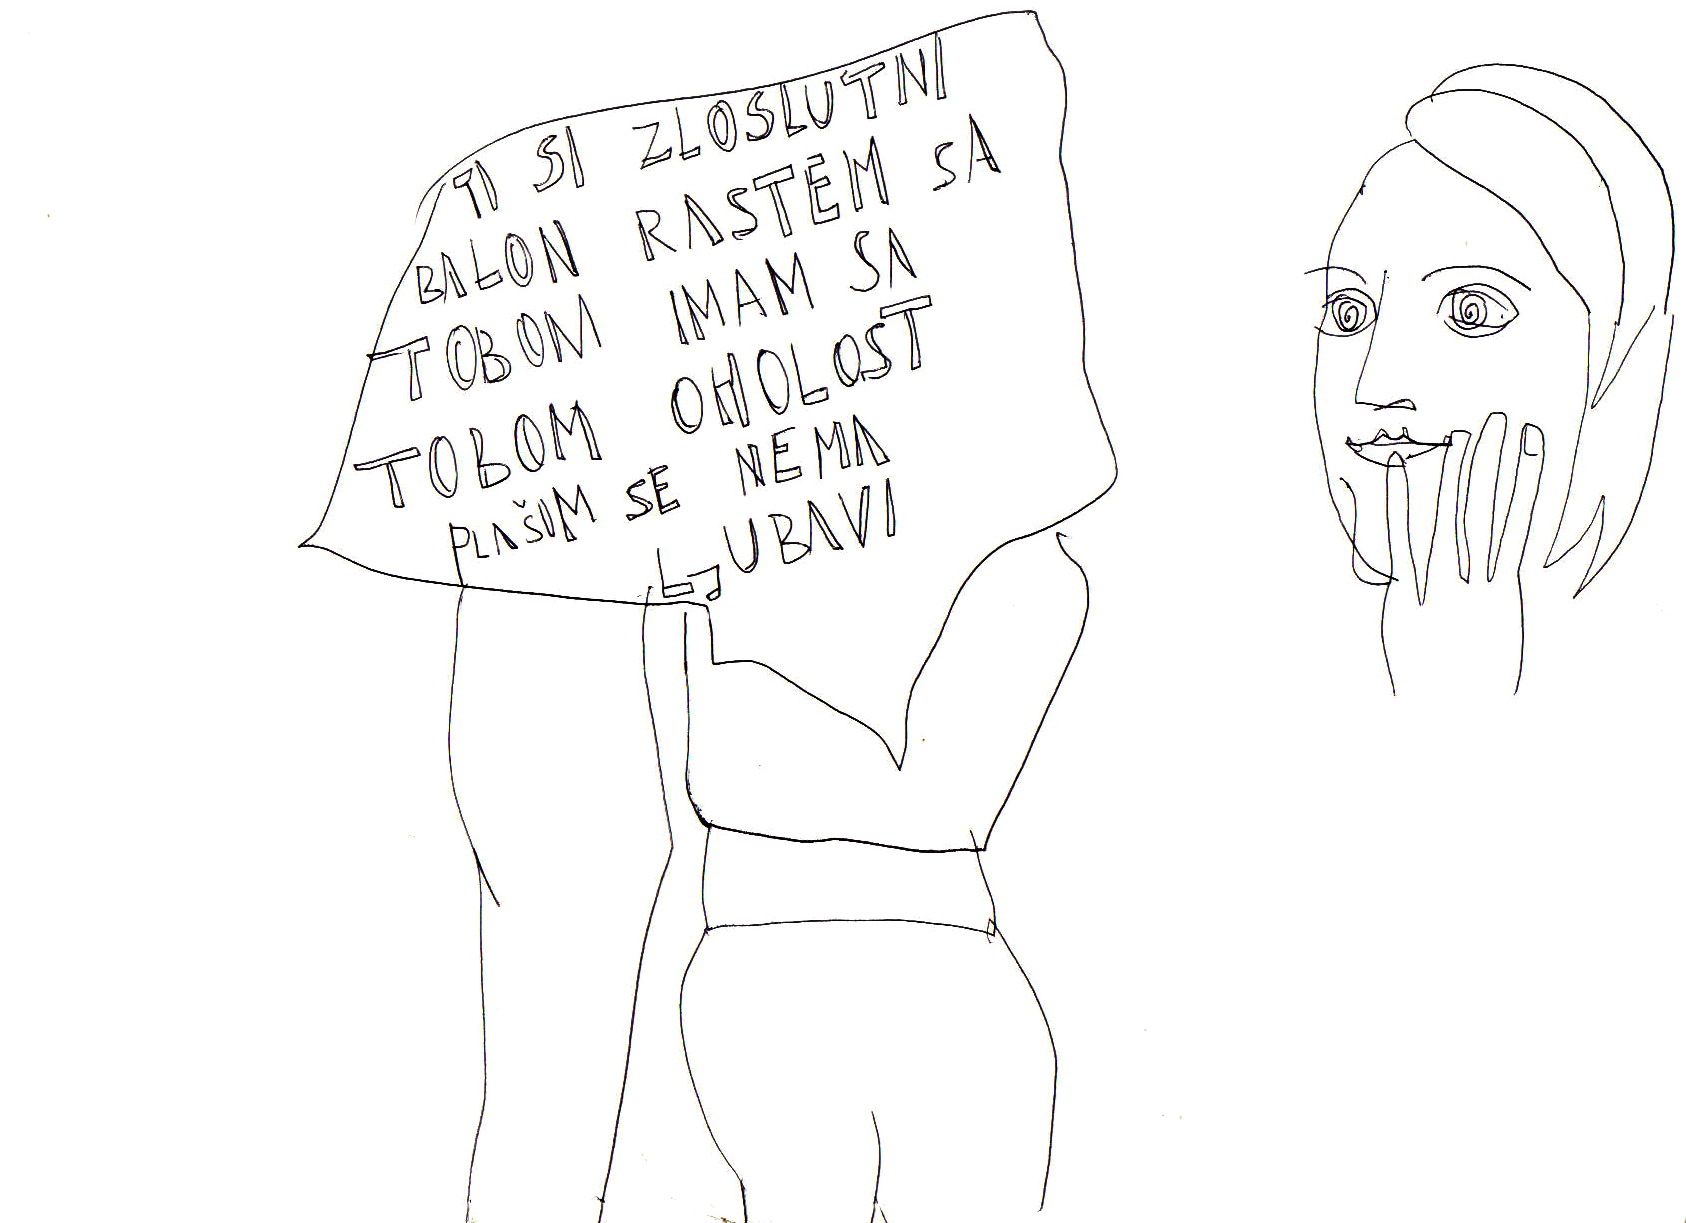 TI SI ZLOSLUTNI
BALON RASTEM SA
TOBOM IMAM SA
TOBOM OHOLOST
PLAŠIM SE NEMA
LJUBAVI